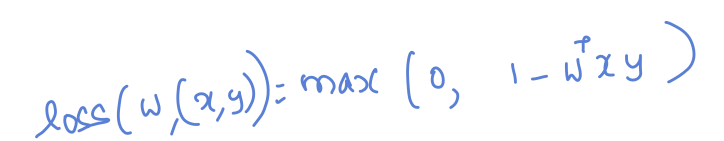 loss(w,(x,y)) = max(0, 1 - wᵀxy)